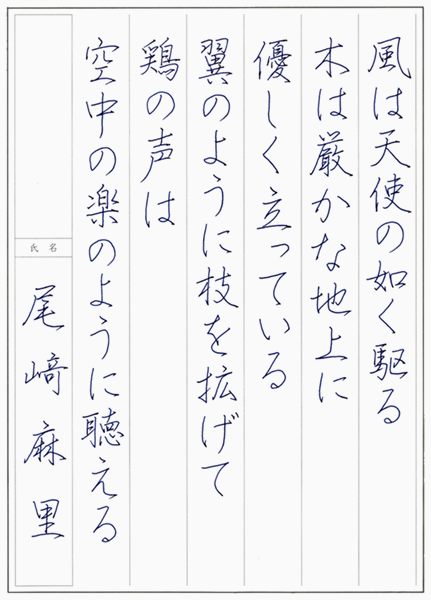 風は天使の如く駆る
木は厳かな地上に
優しく立っている
翼のように枝を拡げて
鶏の声は
空中の楽のように聴える
氏名
尾﨑麻里